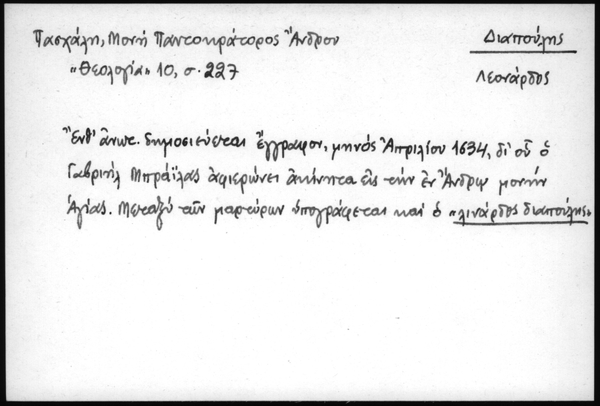 Πασχάλη, Μονή Παντοκράτορος Ἄνδρου
Διαπούλης
«Θεολογία» 10, σ. 227
Λεονάρδος
Ἔνθ' ἄνωτ. δημοσιεύεται ἔγγραφον, μηνὸς Ἀπριλίου 1634, δι' οὗ ὁ
Γαβριὴλ Μπράϊλας ἀφιερώνει ἀκίνητα εἰς τὴν ἐν Ἄνδρῳ μονὴν
Ἁγίας. Μεταξὺ τῶν μαρτύρων ὑπογράφεται καὶ ὁ «λινάρδος διαπούλης»